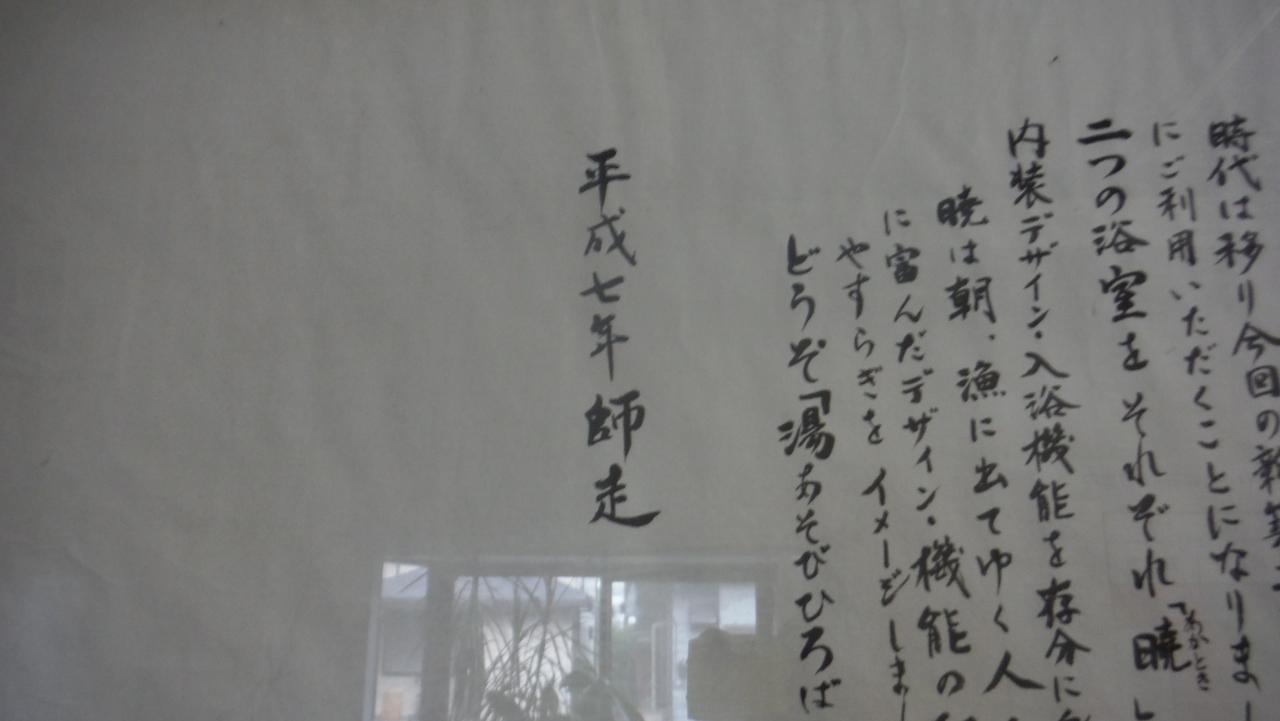 時代は移り今回の新築
にご利用いただくことになりまし
二つの浴室をそれぞれ「暁
あかとき
内装デザイン・入浴機能を存分に
暁は朝、漁に出てゆく人
に富んだデザイン・機能の
やすらぎをイメージしまし
どうぞ「湯あそびひろば
平成七年 師走